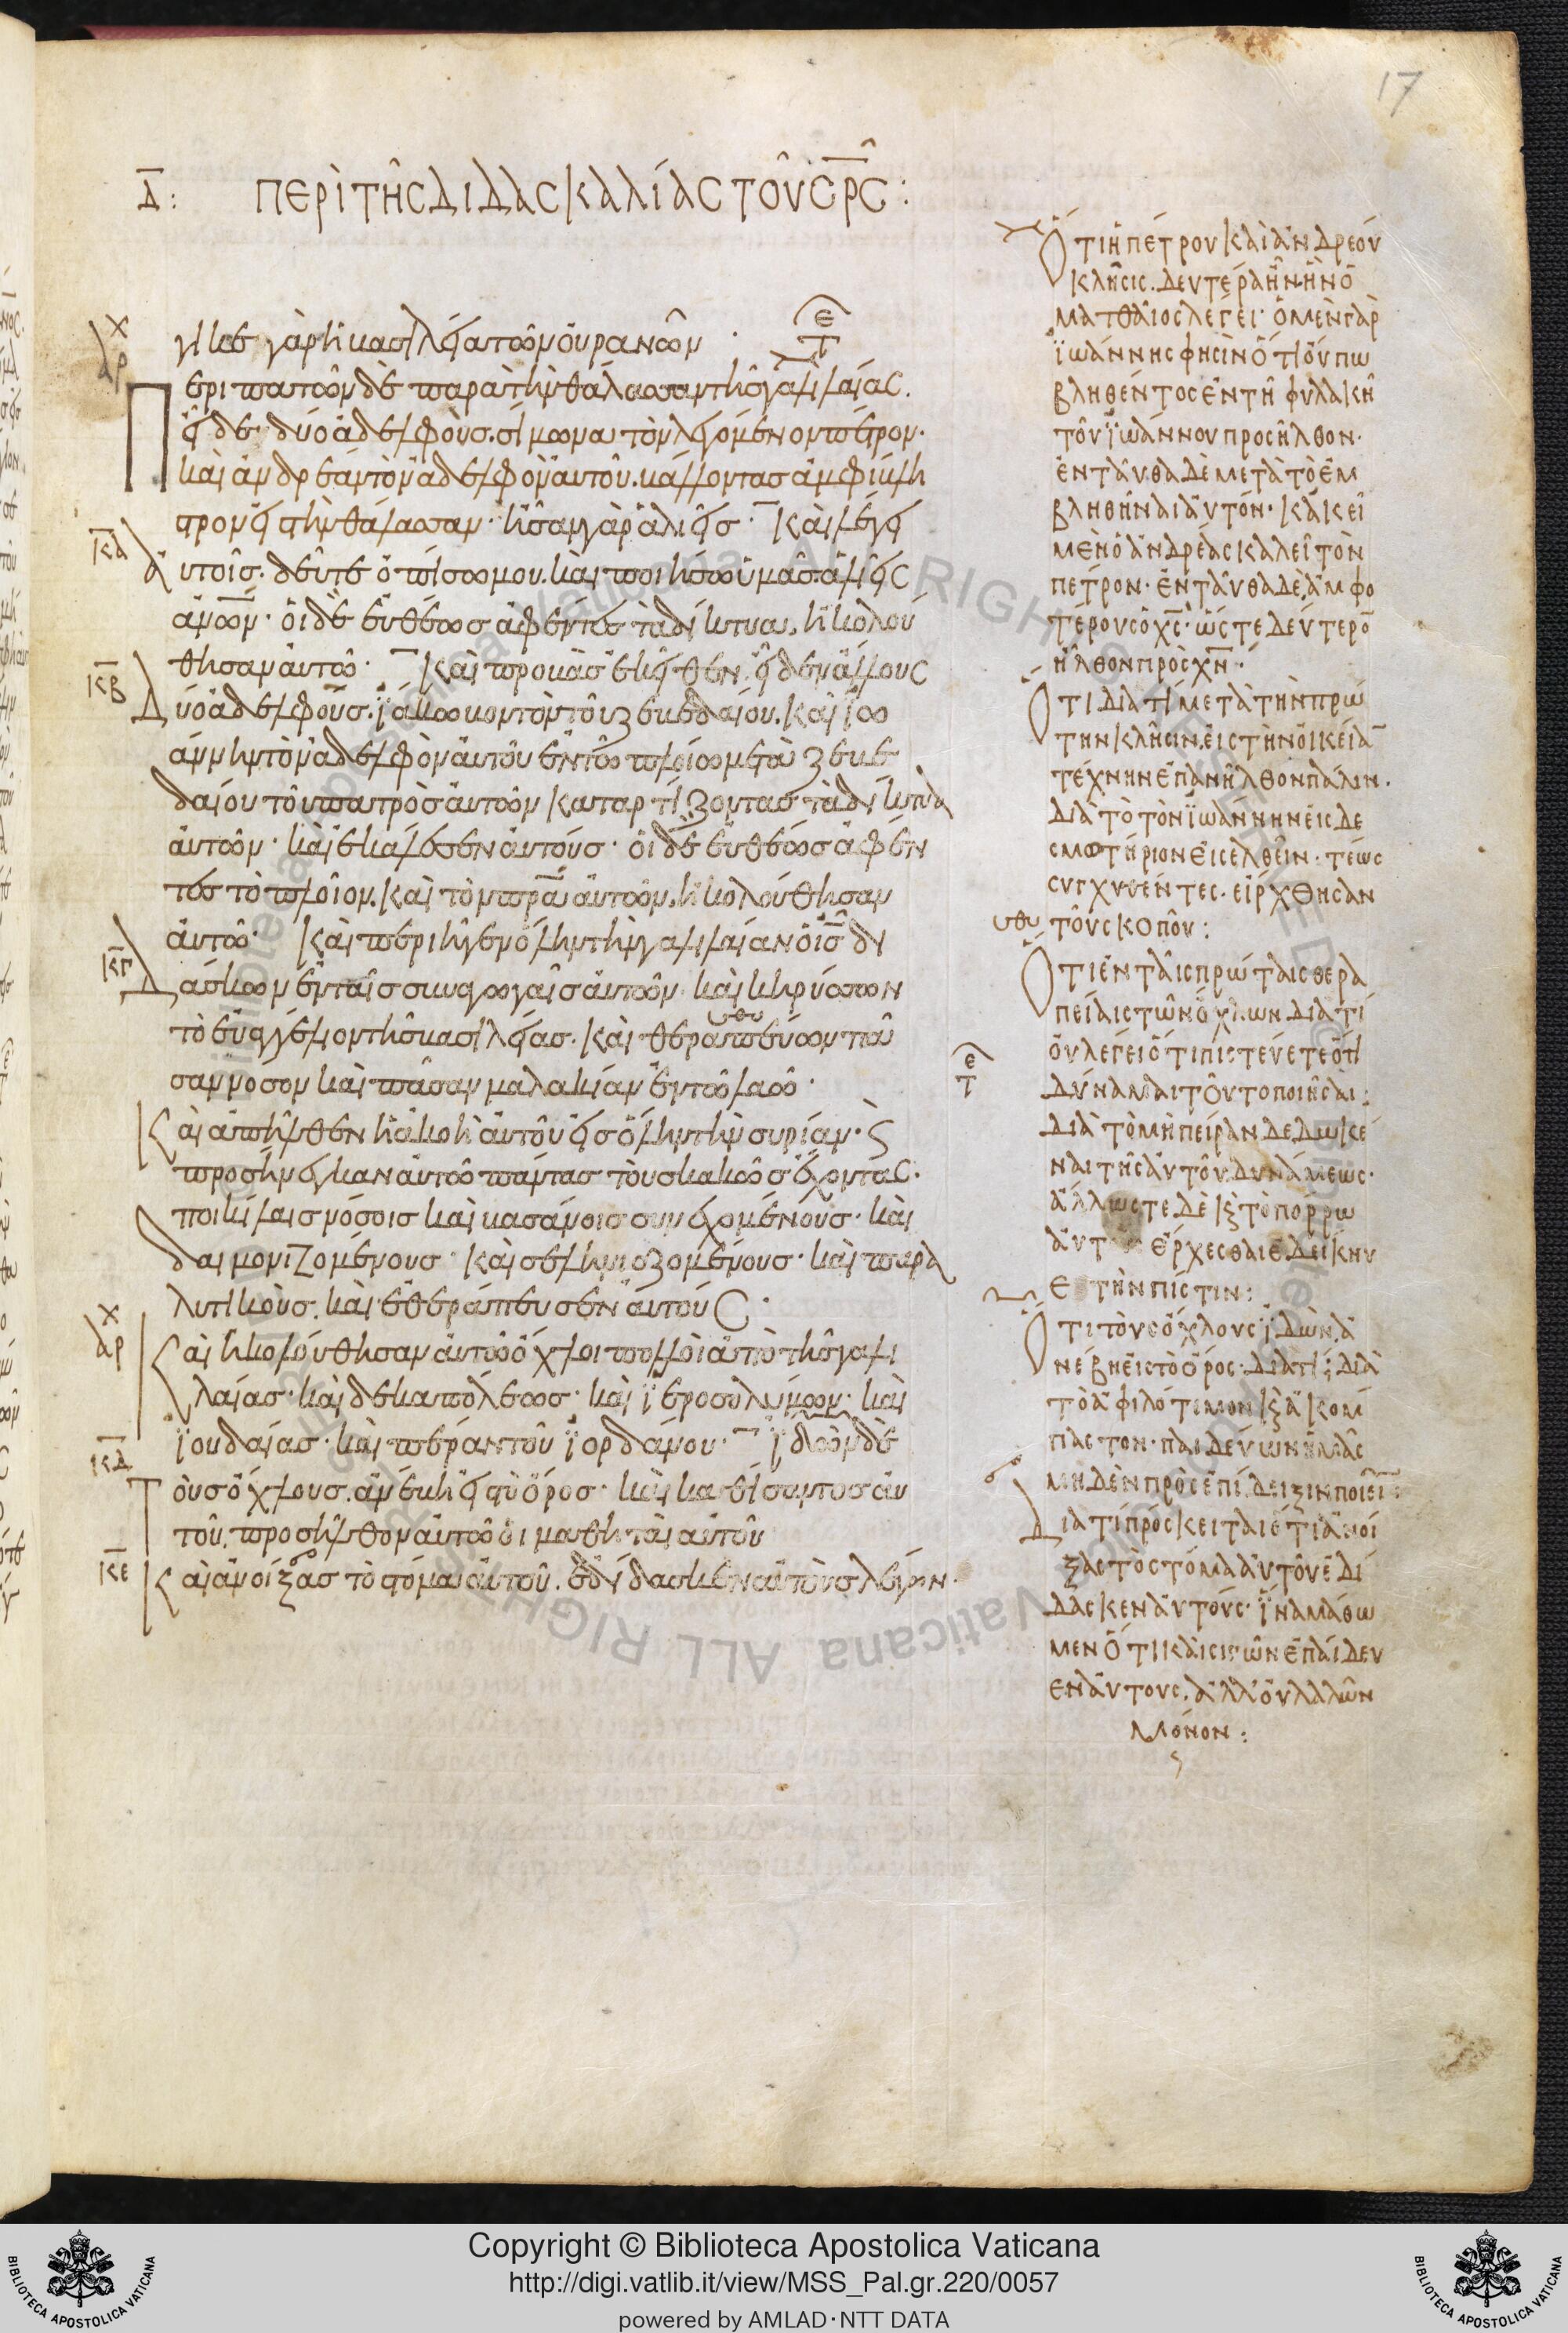 17
Δ: ΠΕΡὶ ΤῆC ΔΙΔΑCΚΑΛίΑC ΤΟῦ C̅Ρ̅C̅:
γικε γὰρ ἡ βασιλεία τῶν οὐρανῶν·
Περιπατῶν δὲ παρὰ τὴν θάλασσαν τῆς γαλιλαίας.
εἶδε δύο ἀδελφοὺς. σίμωνα τὸν λεγόμενον πέτρον.
καὶ ἀνδρέαν τὸν ἀδελφὸν αὐτοῦ. βάλλοντας ἀμφίβλη
στρον εἰς τὴν θάλασσαν· ἦσαν γὰρ ἁλιεῖς· Καὶ λέγει
κα αὐτοῖς. δεῦτε ὀπίσω μου. καὶ ποιήσω ὑμᾶς ἁλιεῖς
ἀν̅ω̅ν̅· οἱ δὲ εὐθέως ἀφέντες τὰ δίκτυα, ἠκολού
θησαν αὐτῷ· Καὶ προβὰς ἐκεῖθεν, εἶδεν ἄλλους
κβ Δύο ἀδελφοὺς. ϊάκωβον τὸν τοῦ ζεβεδαίου. καὶ ϊω
άννην τὸν ἀδελφὸν αὐτοῦ ἐν τῷ πλοίῳ μετὰ ζεβε
δαίου τοῦ πατρὸς αὐτῶν καταρτίζοντας τὰ δίκτυα
αὐτῶν· καὶ ἐκάλεσεν αὐτούς· οἱ δὲ εὐθέως ἀφέν
τες τὸ πλοῖον. καὶ τὸν π̅ρ̅α̅ αὐτῶν. ἠκολούθησαν
αὐτῷ· Καὶ περιῆγεν ὅλην τὴν γαλιλαίαν ὁ ι̅ς̅ δι
κγ Δάσκων ἐν ταῖς συναγωγαῖς αὐτῶν. καὶ κηρύσσων
τὸ εὐαγγέλιον τῆς βασιλείας. καὶ θεραπεύων πᾶ
σαν νόσον καὶ πᾶσαν μαλακίαν ἐν τῷ λαῷ·
Καὶ ἀπῆλθεν ἡ ἀκοὴ αὐτοῦ εἰς ὅλην τὴν συρίαν· ϛ
προσήνεγκαν αὐτῷ πάντας τοὺς κακῶς ἔχοντας.
ποικίλαις νόσοις καὶ βασάνοις συνεχομένους· καὶ
δαιμονιζομένους· καὶ σεληνιαζομένους· καὶ παρα
λυτικοὺς. καὶ ἐθεράπευσεν αὐτούς·
Καὶ ἠκολούθησαν αὐτῷ ὄχλοι πολλοὶ ἀπὸ τῆς γαλι
λαίας· καὶ δεκαπόλεως· καὶ ϊεροσολύμων· καὶ
ϊουδαίας· καὶ πέραν τοῦ ϊορδάνου· ϊδὼν δὲ
κδ Τοὺς ὄχλους. ἀνέβη εἰς τὸ ὄρος· καὶ καθίσαντος αὐ
τοῦ. προσῆλθον αὐτῷ οἱ μαθηταὶ αὐτοῦ
κε Καὶ ἀνοίξας τὸ στόμα αὐτοῦ. ἐδίδασκεν αὐτοὺς λέγων·
Ὅτι ἡ πέτρου καὶ ἀνδρέου
κλῆσις. δευτέρα ἦν. ἣν ὁ
ματθαῖος λέγει· ὁ μὲν γὰρ
ϊωάννης φησὶν ὅτι οὔπω
βληθέντος ἐν τῇ φυλακῇ
τοῦ ϊωάννου προσῆλθον·
ἐνταῦθα δὲ μετὰ τὸ ἐμ
βληθῆναι αὐτόν· κἀκεῖ
μὲν ὁ ἀνδρέας καλεῖ τὸν
πέτρον· ἐνταῦθα δὲ, ἀμφο
τέρους ὁ χ̅ς̅· ὥστε δεύτερο̅
ἦλθον πρὸς χ̅ν̅·
Ὅτι διατί μετὰ τὴν πρώ
την κλῆσιν, εἰς τὴν οἰκεία̅
τέχνην ἐπανῆλθον πάλιν.
διὰ τὸ τὸν ϊωάννην εἰς δε
σμωτήριον εἰσελθεῖν. τέως
συγχυθέντες. εἴρχθησαν
τοῦ σκοποῦ:
Ὅτι ἐν ταῖς πρώταις θερα
πείαις τῶν ὄχλων. διατί
οὐ λέγει ὅτι πιστεύετε ὅτι
δύναμαι τοῦτο ποιῆσαι;
διὰ τὸ μὴ πεῖραν δεδωκέ
ναι τῆς αὐτοῦ δυνάμεως·
ἄλλως τε δὲ κ̀ τὸ πόρρω
ἔρχεσθαι ἐδείκνυ
τὴν πίστιν:
Ὅτι τοὺς ὄχλους ϊδὼν, ἀ
νέβη εἰς τὸ ὄρος. διατί; διὰ
τὸ ἀφιλότιμον κ̀ ἄκομ
παστον· παιδεύων ἡμᾶς
μηδὲν πρὸς ἐπίδειξιν ποιεῖ̅:
Διατί πρόσκειται ὅτι ἀνοί
ξας τὸ στόμα αὐτοῦ ἐδί
δασκεν αὐτούς· ϊνα μάθω
μεν ὅτι καὶ σιγῶν ἐπαίδευ
εν αὐτους. ἀλλ' οὐ λαλῶν
μόνον:
Copyright © Biblioteca Apostolica Vaticana
http://digi.vatlib.it/view/MSS_Pal.gr.220/0057
powered by AMLAD·NTT DATA